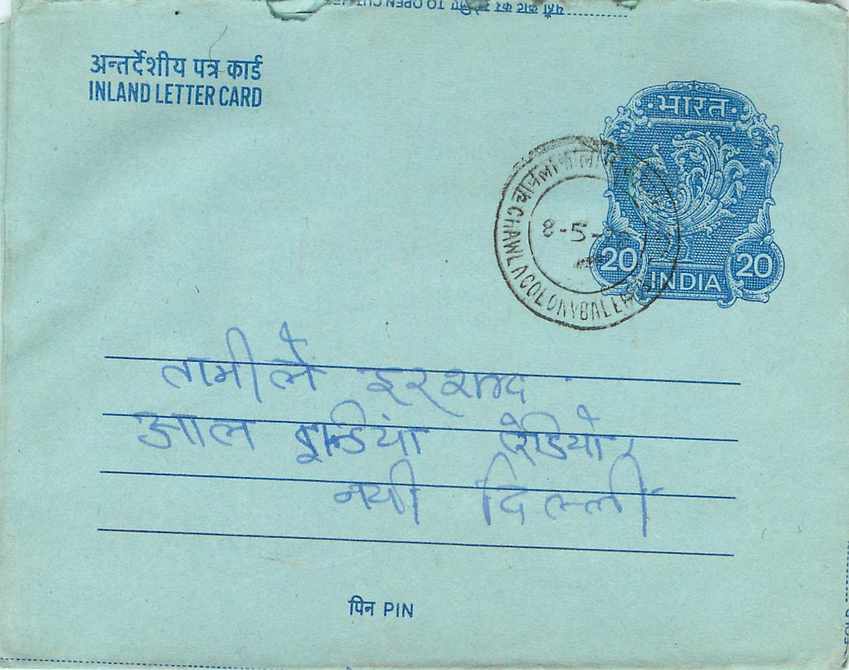 यहाँ काट कर खोलिए TO OPEN CUT HERE
अन्तर्देशीय पत्र कार्ड
INLAND LETTER CARD
भारत
चावला कॉलोनी
8-5-
CHAWLA COLONY BALLA
20 INDIA 20
तामीले इरशाद
आल इन्डिया रेडियो
नयी दिल्ली
पिन PIN